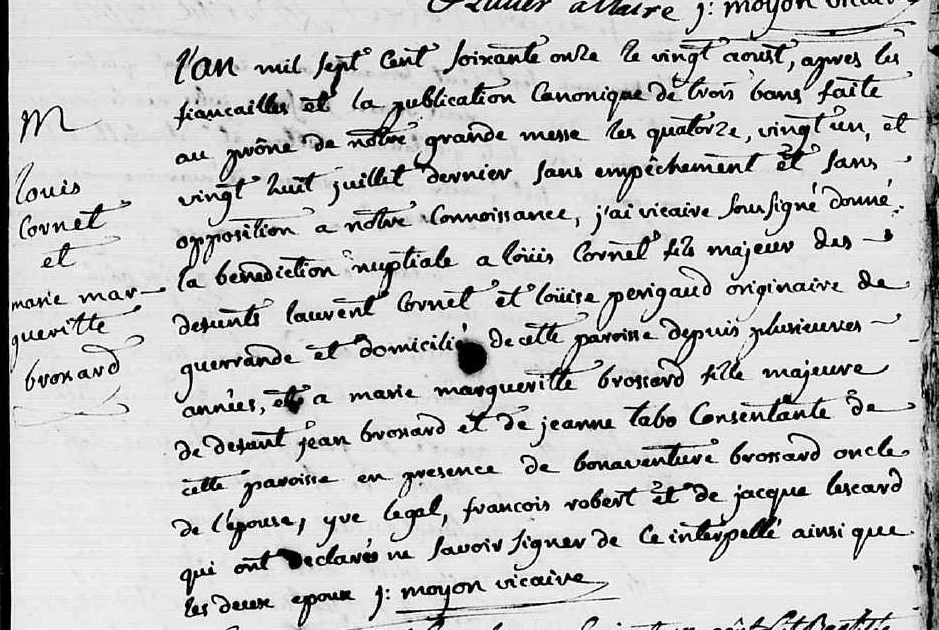 allaire j: moyon vicaire
l'an mil sept cent soixante onze le vingt aoust, apres les
fiancailles et la publication canonique de trois bans faite
au prône de notre grande messe les quatorze, vingt un, et
vingt huit juillet dernier sans empêchement et sans
opposition a notre connoissance, j'ai vicaire soussigné donné
la benediction nuptiale a loüis Cornet fils majeur des
defunts laurent Cornet et loüise perigaud originaire de
guerrande et domicilié de cette paroisse depuis plusieures
années, et a marie margueritte brossard fille majeure
de defunt jean brossard et de jeanne tabo Consentante de
cette paroisse en presence de bonaventure brossard oncle
de l'epouse, yve legal, francois robert et de jacque lescard
qui ont declarés ne savoir signer de ce interpellé ainsi que
les deux epoux j: moyon vicaire
M
louis
Cornet
et
marie mar-
gueritte
brossard